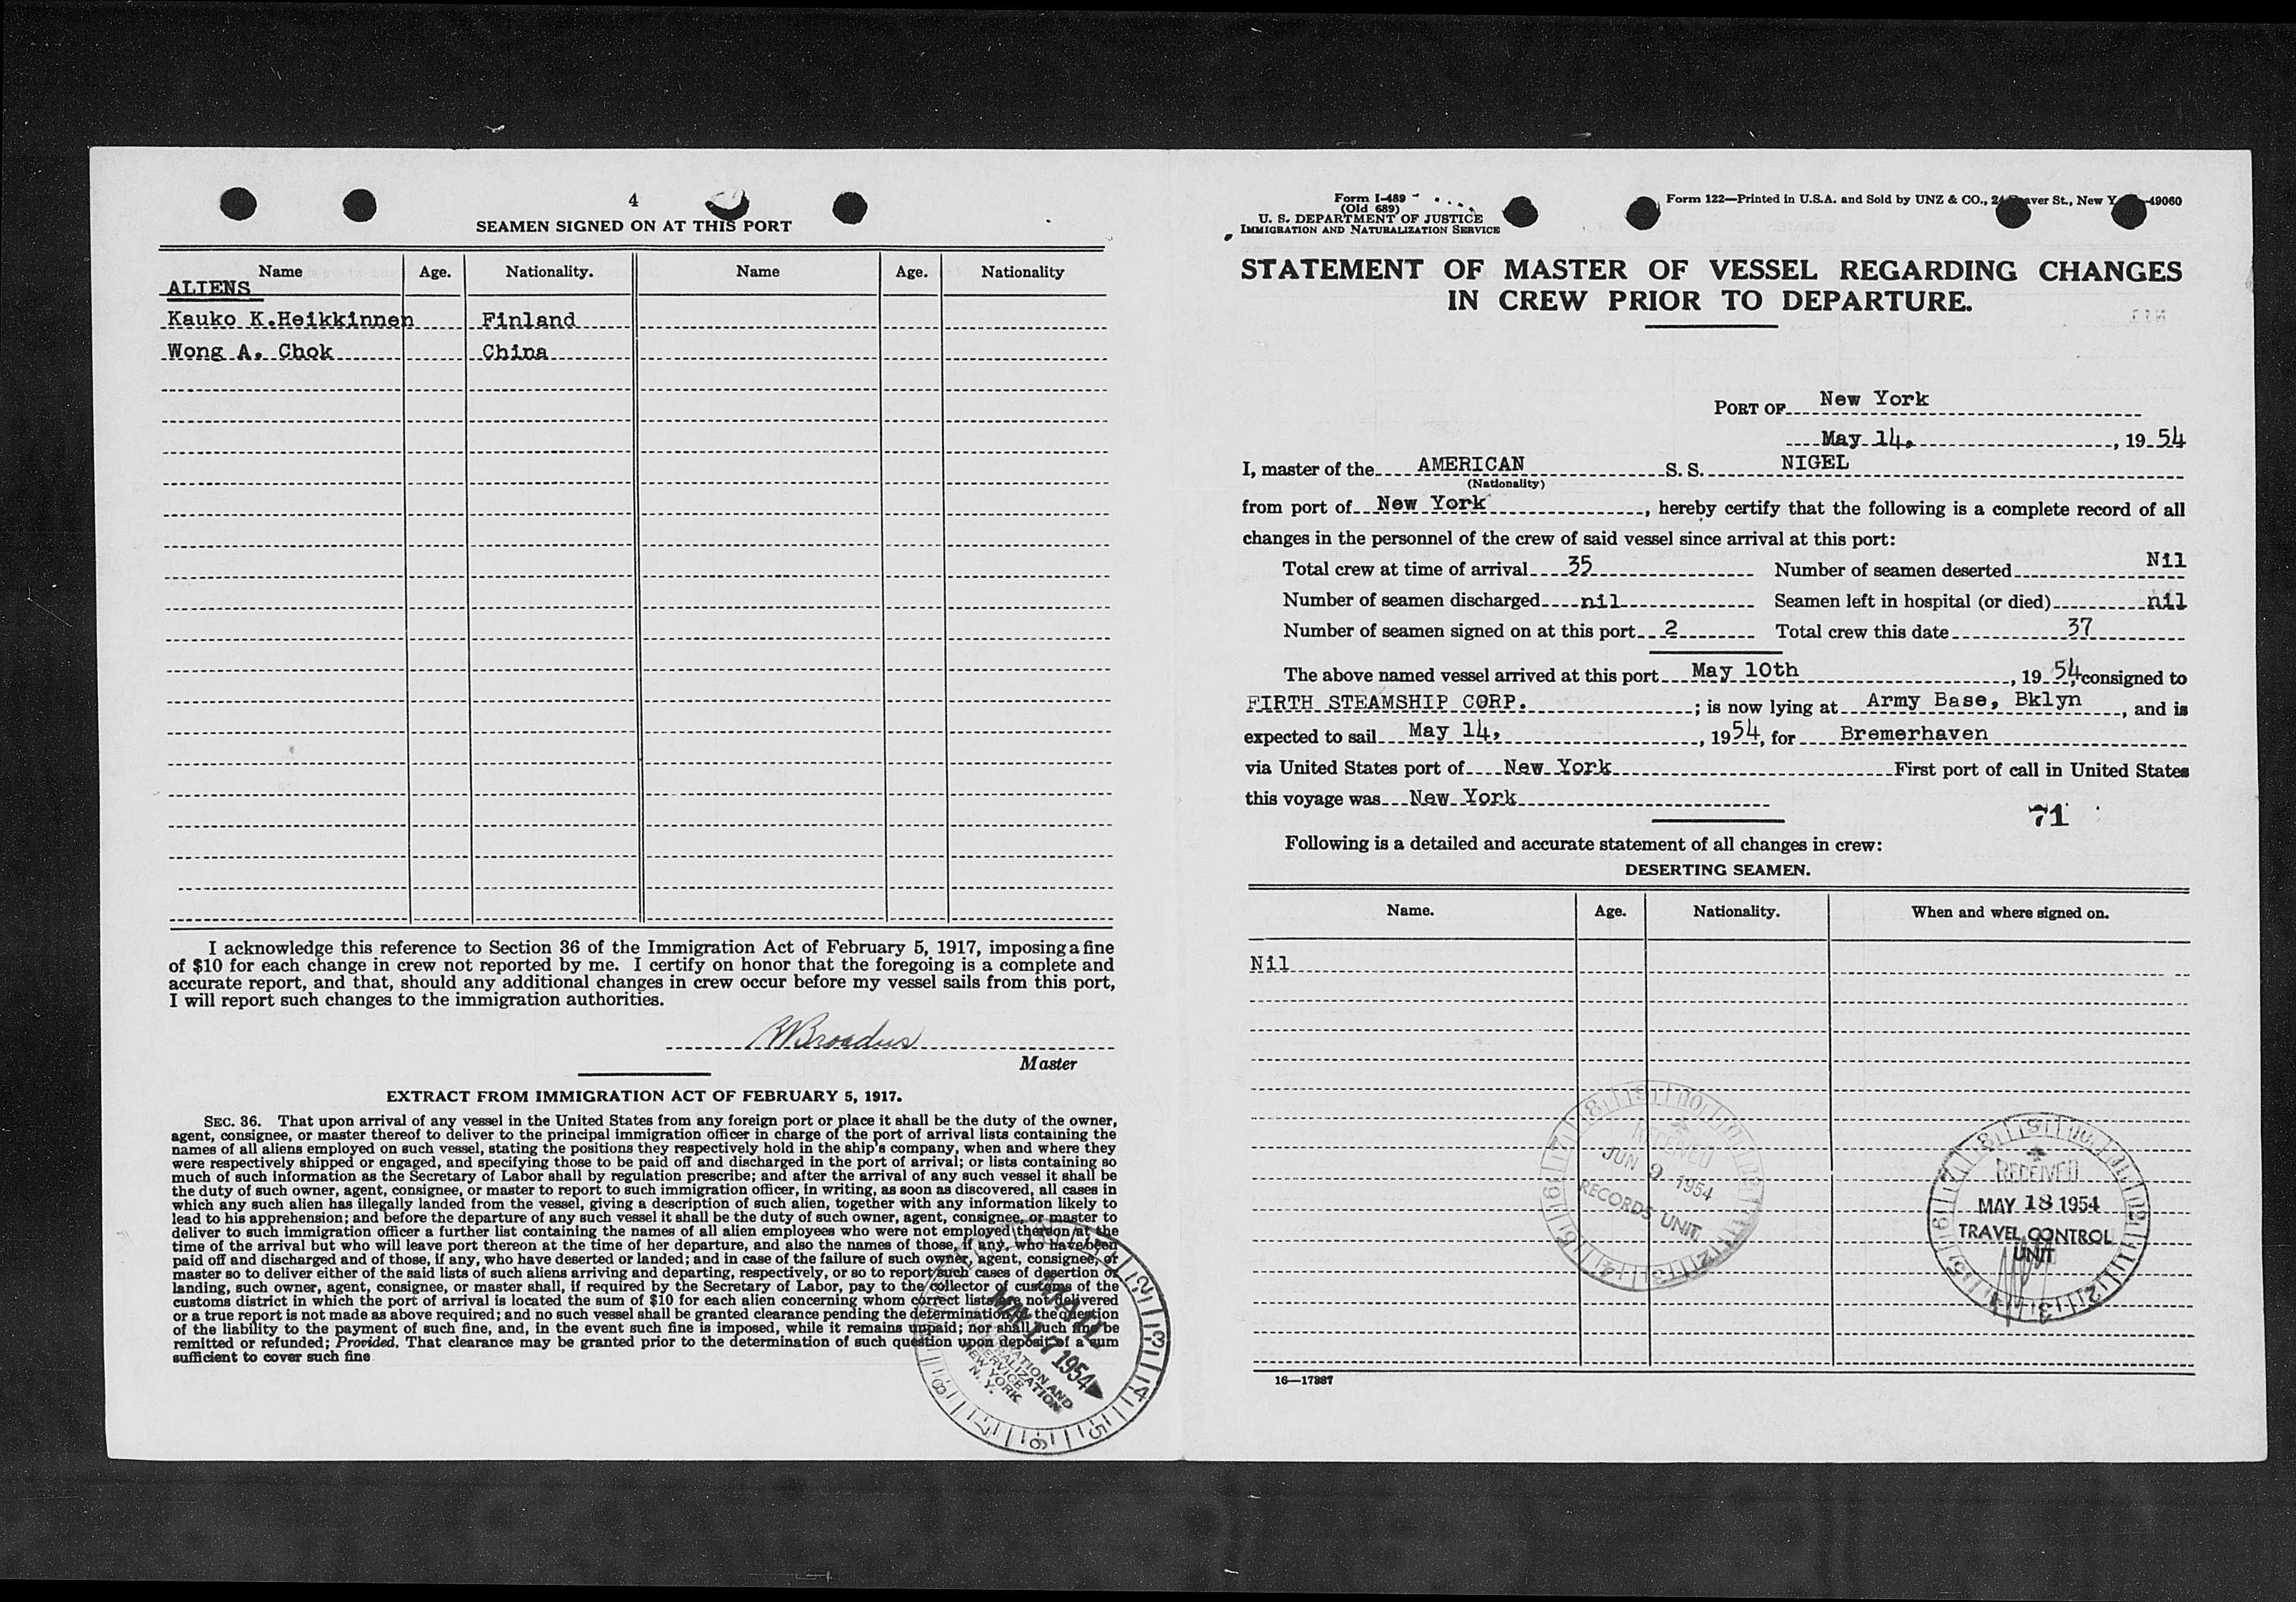 4
SEAMEN SIGNED ON AT THIS PORT
Name Age. Nationality. Name Age. Nationality
ALIENS
Kauko K.Heikkinnen Finland
Wong A. Chok China
I acknowledge this reference to Section 36 of the Immigration Act of February 5, 1917, imposing a fine
of $10 for each change in crew not reported by me. I certify on honor that the foregoing is a complete and
accurate report, and that, should any additional changes in crew occur before my vessel sails from this port,
I will report such changes to the immigration authorities.
Broadus
Master
EXTRACT FROM IMMIGRATION ACT OF FEBRUARY 5, 1917.
SEC. 36. That upon arrival of any vessel in the United States from any foreign port or place it shall be the duty of the owner,
agent, consignee, or master thereof to deliver to the principal immigration officer in charge of the port of arrival lists containing the
names of all aliens employed on such vessel, stating the positions they respectively hold in the ship's company, when and where they
were respectively shipped or engaged, and specifying those to be paid off and discharged in the port of arrival; or lists containing so
much of such information as the Secretary of Labor shall by regulation prescribe; and after the arrival of any such vessel it shall be
the duty of such owner, agent, consignee, or master to report to such immigration officer, in writing, as soon as discovered, all cases in
which any such alien has illegally landed from the vessel, giving a description of such alien, together with any information likely to
lead to his apprehension; and before the departure of any such vessel it shall be the duty of such owner, agent, consignee, or master to
deliver to such immigration officer a further list containing the names of all alien employees who were not employed thereon at the
time of the arrival but who will leave port thereon at the time of her departure, and also the names of those, if any, who have been
paid off and discharged and of those, if any, who have deserted or landed; and in case of the failure of such owner, agent, consignee, or
master so to deliver either of the said lists of such aliens arriving and departing, respectively, or so to report such cases of desertion or
landing, such owner, agent, consignee, or master shall, if required by the Secretary of Labor, pay to the collector of customs of the
customs district in which the port of arrival is located the sum of $10 for each alien concerning whom correct lists are not delivered
or a true report is not made as above required; and no such vessel shall be granted clearance pending the determination of the question
of the liability to the payment of such fine, and, in the event such fine is imposed, while it remains unpaid; nor shall such fine be
remitted or refunded; Provided, That clearance may be granted prior to the determination of such question upon deposit of a sum
sufficient to cover such fine
MAY 17 1954
IMMIGRATION AND
NATURALIZATION
SERVICE
NEW YORK
N. Y.
Form I-489
(Old 689)
U. S. DEPARTMENT OF JUSTICE
IMMIGRATION AND NATURALIZATION SERVICE
Form 122—Printed in U.S.A. and Sold by UNZ & CO., 24 St., New 49060
STATEMENT OF MASTER OF VESSEL REGARDING CHANGES
IN CREW PRIOR TO DEPARTURE.
PORT OF New York
May 14, , 19 54
I, master of the AMERICAN S. S. NIGEL
(Nationality)
from port of New York , hereby certify that the following is a complete record of all
changes in the personnel of the crew of said vessel since arrival at this port:
Total crew at time of arrival 35 Number of seamen deserted Nil
Number of seamen discharged nil Seamen left in hospital (or died) nil
Number of seamen signed on at this port 2 Total crew this date 37
The above named vessel arrived at this port May 10th , 19 54, consigned to
FIRTH STEAMSHIP CORP. ; is now lying at Army Base, Bklyn , and is
expected to sail May 14, , 1954, for Bremerhaven
via United States port of New York First port of call in United States
this voyage was New York
71
Following is a detailed and accurate statement of all changes in crew:
DESERTING SEAMEN.
Name. Age. Nationality. When and where signed on.
Nil
RECEIVED
JUN 9 1954
RECORDS UNIT
RECEIVED
MAY 18 1954
TRAVEL CONTROL
UNIT
16—17887